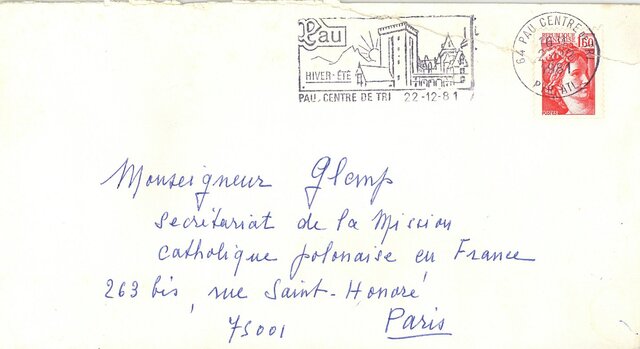 Pau
HIVER-ÉTÉ
PAU CENTRE DE TRI 22-12-81
64 PAU CENTRE DE
1981
Monseigneur Glemp
Secrétariat de la Mission
catholique polonaise en France
263 bis, rue Saint-Honoré
75001 Paris